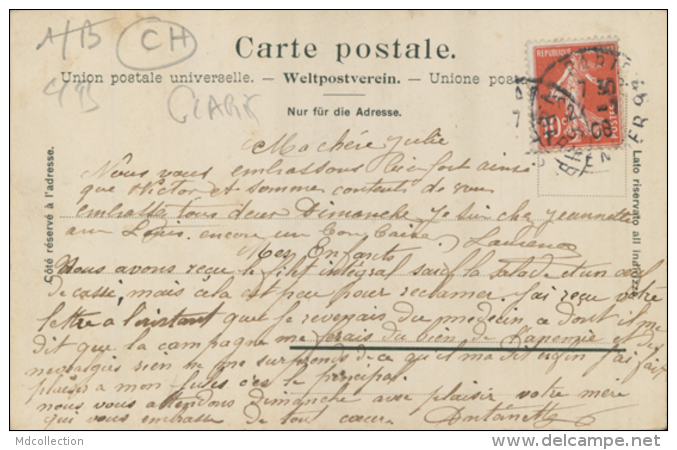 A/B
CH
Carte postale.
Union postale universelle. — Weltpostverein. — Unione post
4B
GLARIS
Nur für die Adresse.
Côté réservé à l'adresse.
Lato riservato all' indirizzo
REPUBLIQUE
10
POSTES
PARIS
7
08
Ma chère Julie
Nous vous embrassons bien fort ainsi
que Victor et sommes contents de vous
embrasser tous deux Dimanche je suis chez Jeannette
encore un bon
Mes Enfants
Nous avons reçu le intégral sauf la salade et un œuf
de cassé, mais cela est peu pour reclamer. J'ai reçu votre
lettre a l'instant que je revenais du medecin ce dont il me
dit que la campagne me ferais du bien de l'anemie et des
nevralgies rien ne me surprends de ce qu'il m'a dit enfin j'ai fait
plaisir a mon c'es le principal.
nous vous attendons Dimanche avec plaisir votre mere
qui vous embrasse de tout cœur Antoinette
Mdcollection
www.delcampe.net